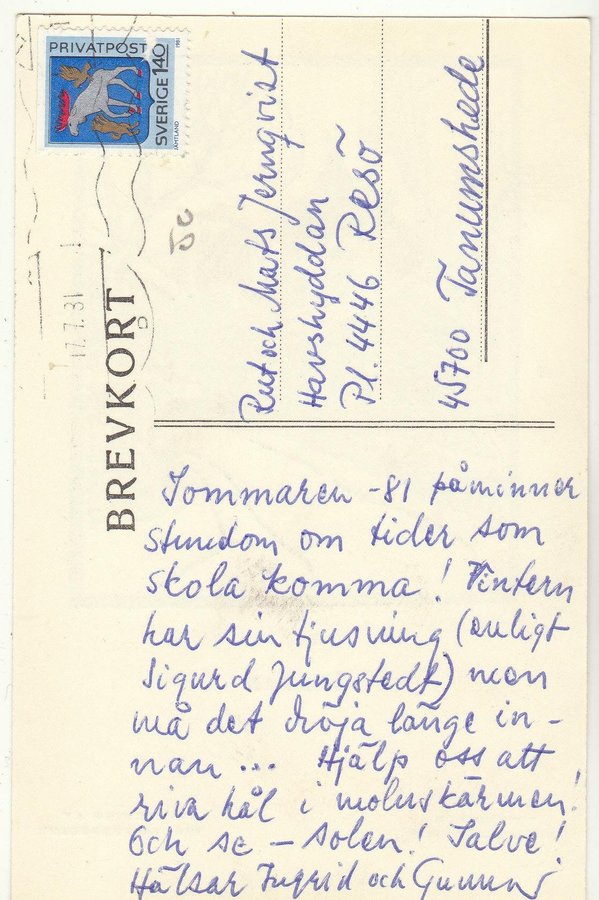 PRIVATPOST
SVERIGE 140
1981
JÄMTLAND
17.7.81
BREVKORT
Rut och Mats Jernqvist
Havshyddan
Pl. 4446 Resö
45700 Tanumshede
Sommaren -81 påminner
stundom om tider som
skola komma! Vintern
har sin tjusning (enligt
Sigurd Jungstedt) men
må det dröja länge in-
nan ... Hjälp oss att
riva hål i molnskärmen!
Och se - solen! Salve!
Hälsar Ingrid och Gunnar